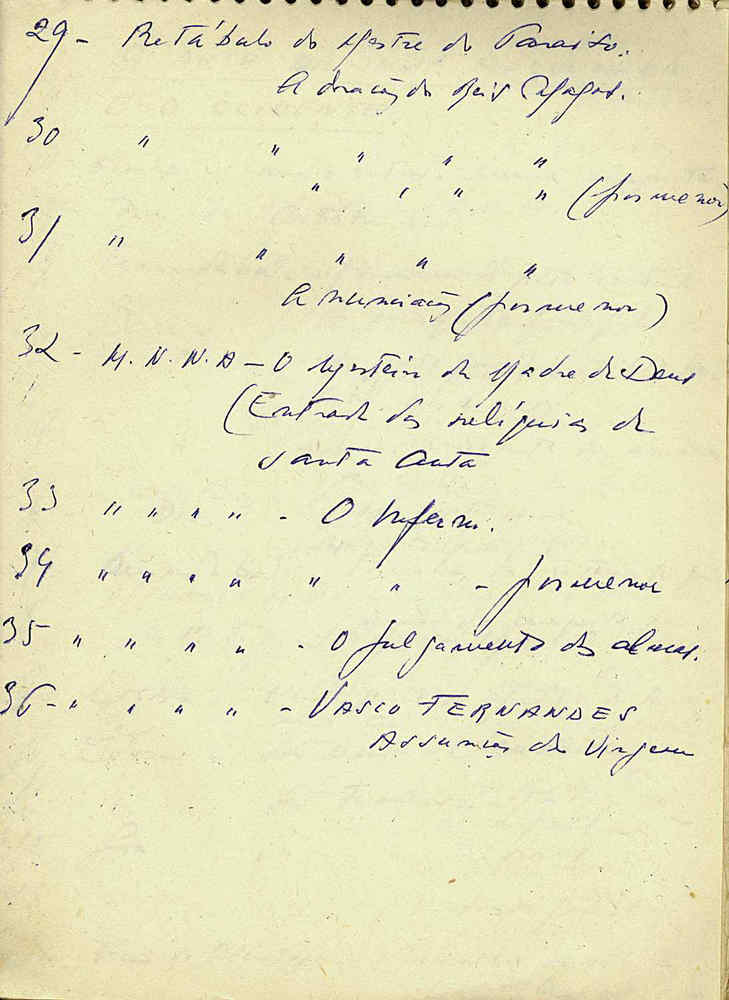 29 - Retábulo do Mestre do Paraiso.
Adoração do Reis Magos.
30 " " " " "
" " " " (pormenor)
31 " " " " "
Anunciação (pormenor)
32 - M.N.N.A - O Mosteiro da Madre de Deus
(Entrada das relíquias de
santa Auta
33 " " " " - O Inferno.
34 " " " " " " - pormenor
35 " " " " - O julgamento das almas.
36 - " " " " - VASCO FERNANDES
Assunção da Virgem